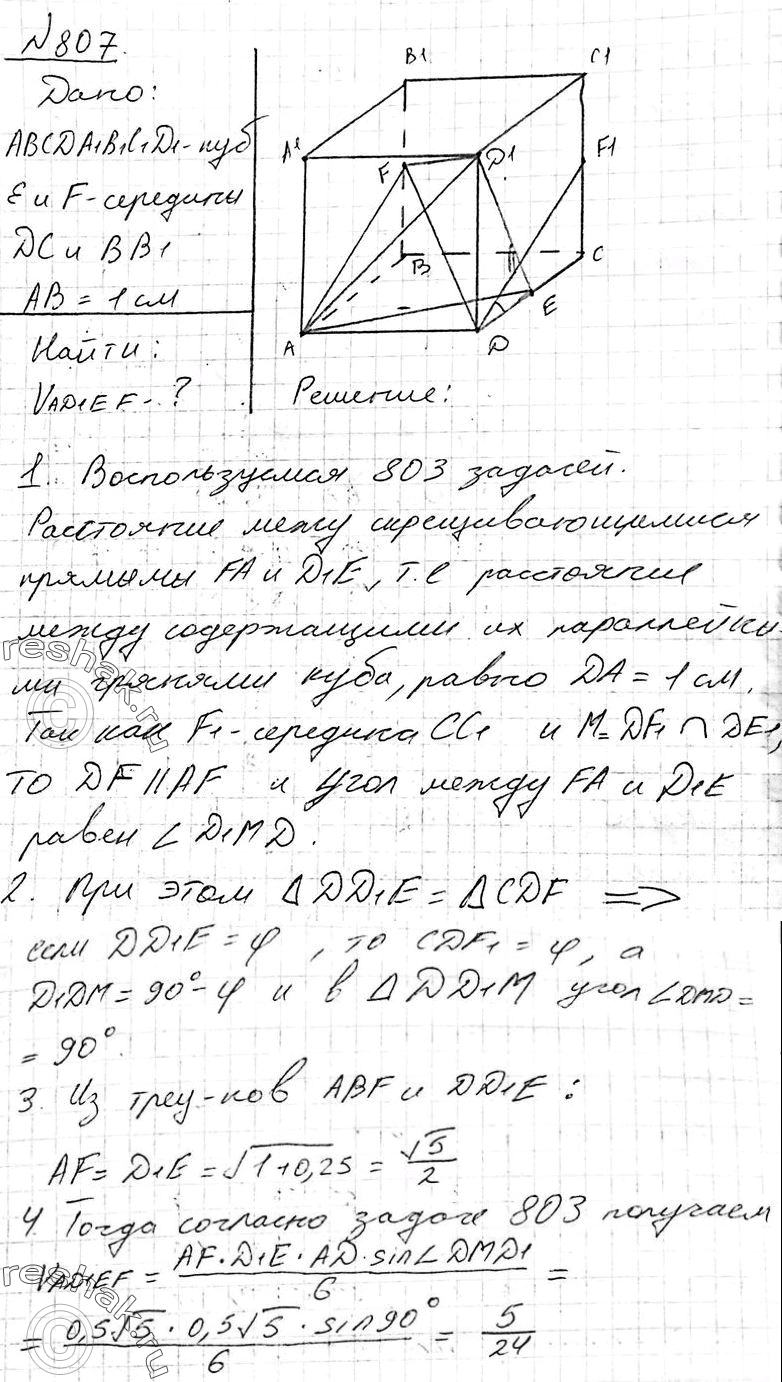 №807.
Дано:
ABCDA1B1C1D1-куб
E и F-середины
DC и BB1
AB = 1 см
Найти:
VAD1EF - ?
B1
C1
A1
D1
F
F1
B
C
E
A
D
Решение:
1. Воспользуемся 803 задачей.
Расстояние между скрещивающимися
прямыми FA и D1E, т.е расстояние
между содержащими их параллельны-
ми гранями куба, равно DA = 1 см.
Так как F1-середина CC1 и M = DF1 ∩ DE1,
то DF || AF и угол между FA и D1E
равен ∠ D1MD.
2. При этом ΔDD1E = ΔCDF =>
если DD1E = φ, то CDF1 = φ, а
D1DM = 90° - φ и в Δ DD1M угол ∠DMD =
= 90°.
3. Из треу-ков ABF и DD1E:
AF = D1E = √1+0,25 = √5/2
4. Тогда согласно задаче 803 получаем
VAD1EF = AF·D1E·AD·sin∠DMD1/6 =
= 0,5√5 · 0,5√5 · sin90°/6 = 5/24
reshak.ru
reshak.ru